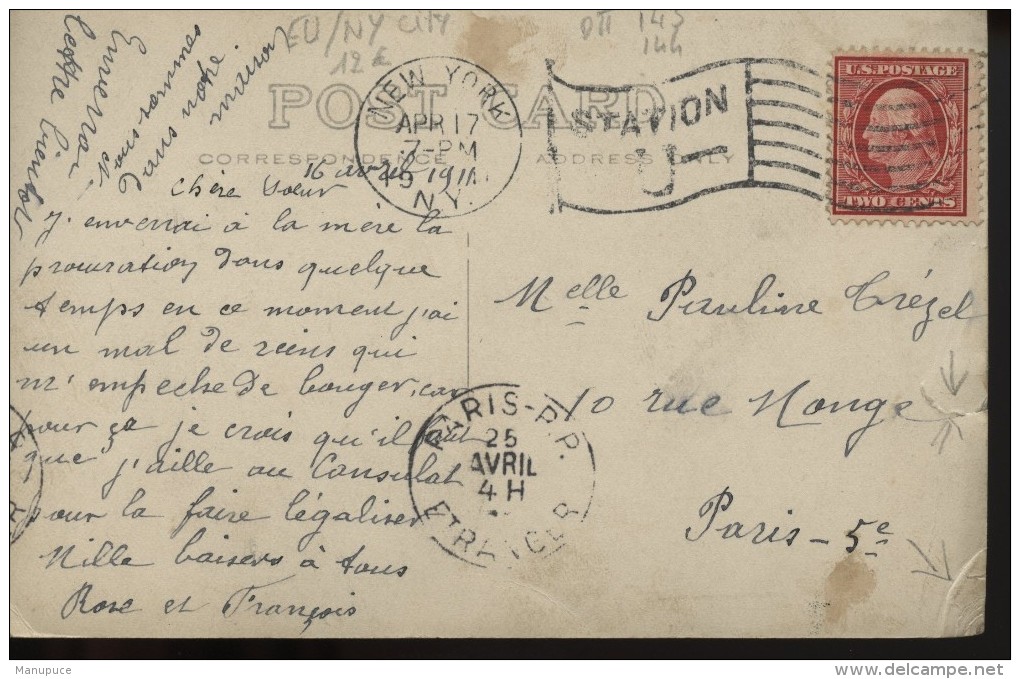 EU/NY City
12€
143
144
POST CARD
CORRESPONDENCE
ADDRESS ONLY
NEW YORK
APR 17
7-PM
1911
N.Y.
STATION
J
U.S. POSTAGE
TWO CENTS
16 avril
Chère Soeur
J'enverrai à la mère la
procuration dans quelque
temps en ce moment j'ai
un mal de reins qui
m'empeche de bouger, car
pour ça je crois qu'il faut
que j'aille au Consulat
pour la faire légaliser
Mille baisers à tous
Rose et François
Melle Pauline Trézel
10 rue Monge
Paris - 5e
PARIS-R.P.
25
AVRIL
4 H
ETRANGER
Manupuce
delcampe.net